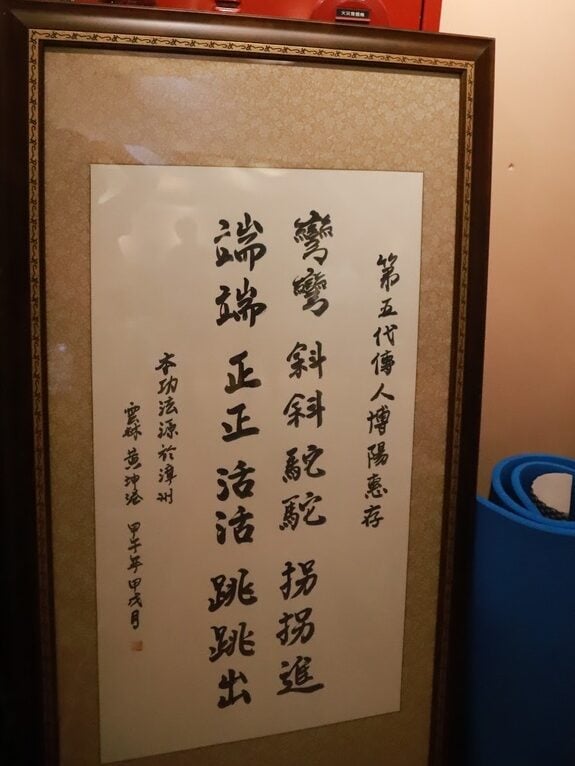 第五代傳人博陽惠存
彎彎斜斜駝駝拐拐進
端端正正活活跳跳出
本功法源於漳州
雲林 黃坤浤 甲午年甲戌月